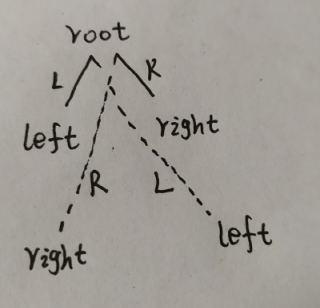 root
L R
left right
R L
right left